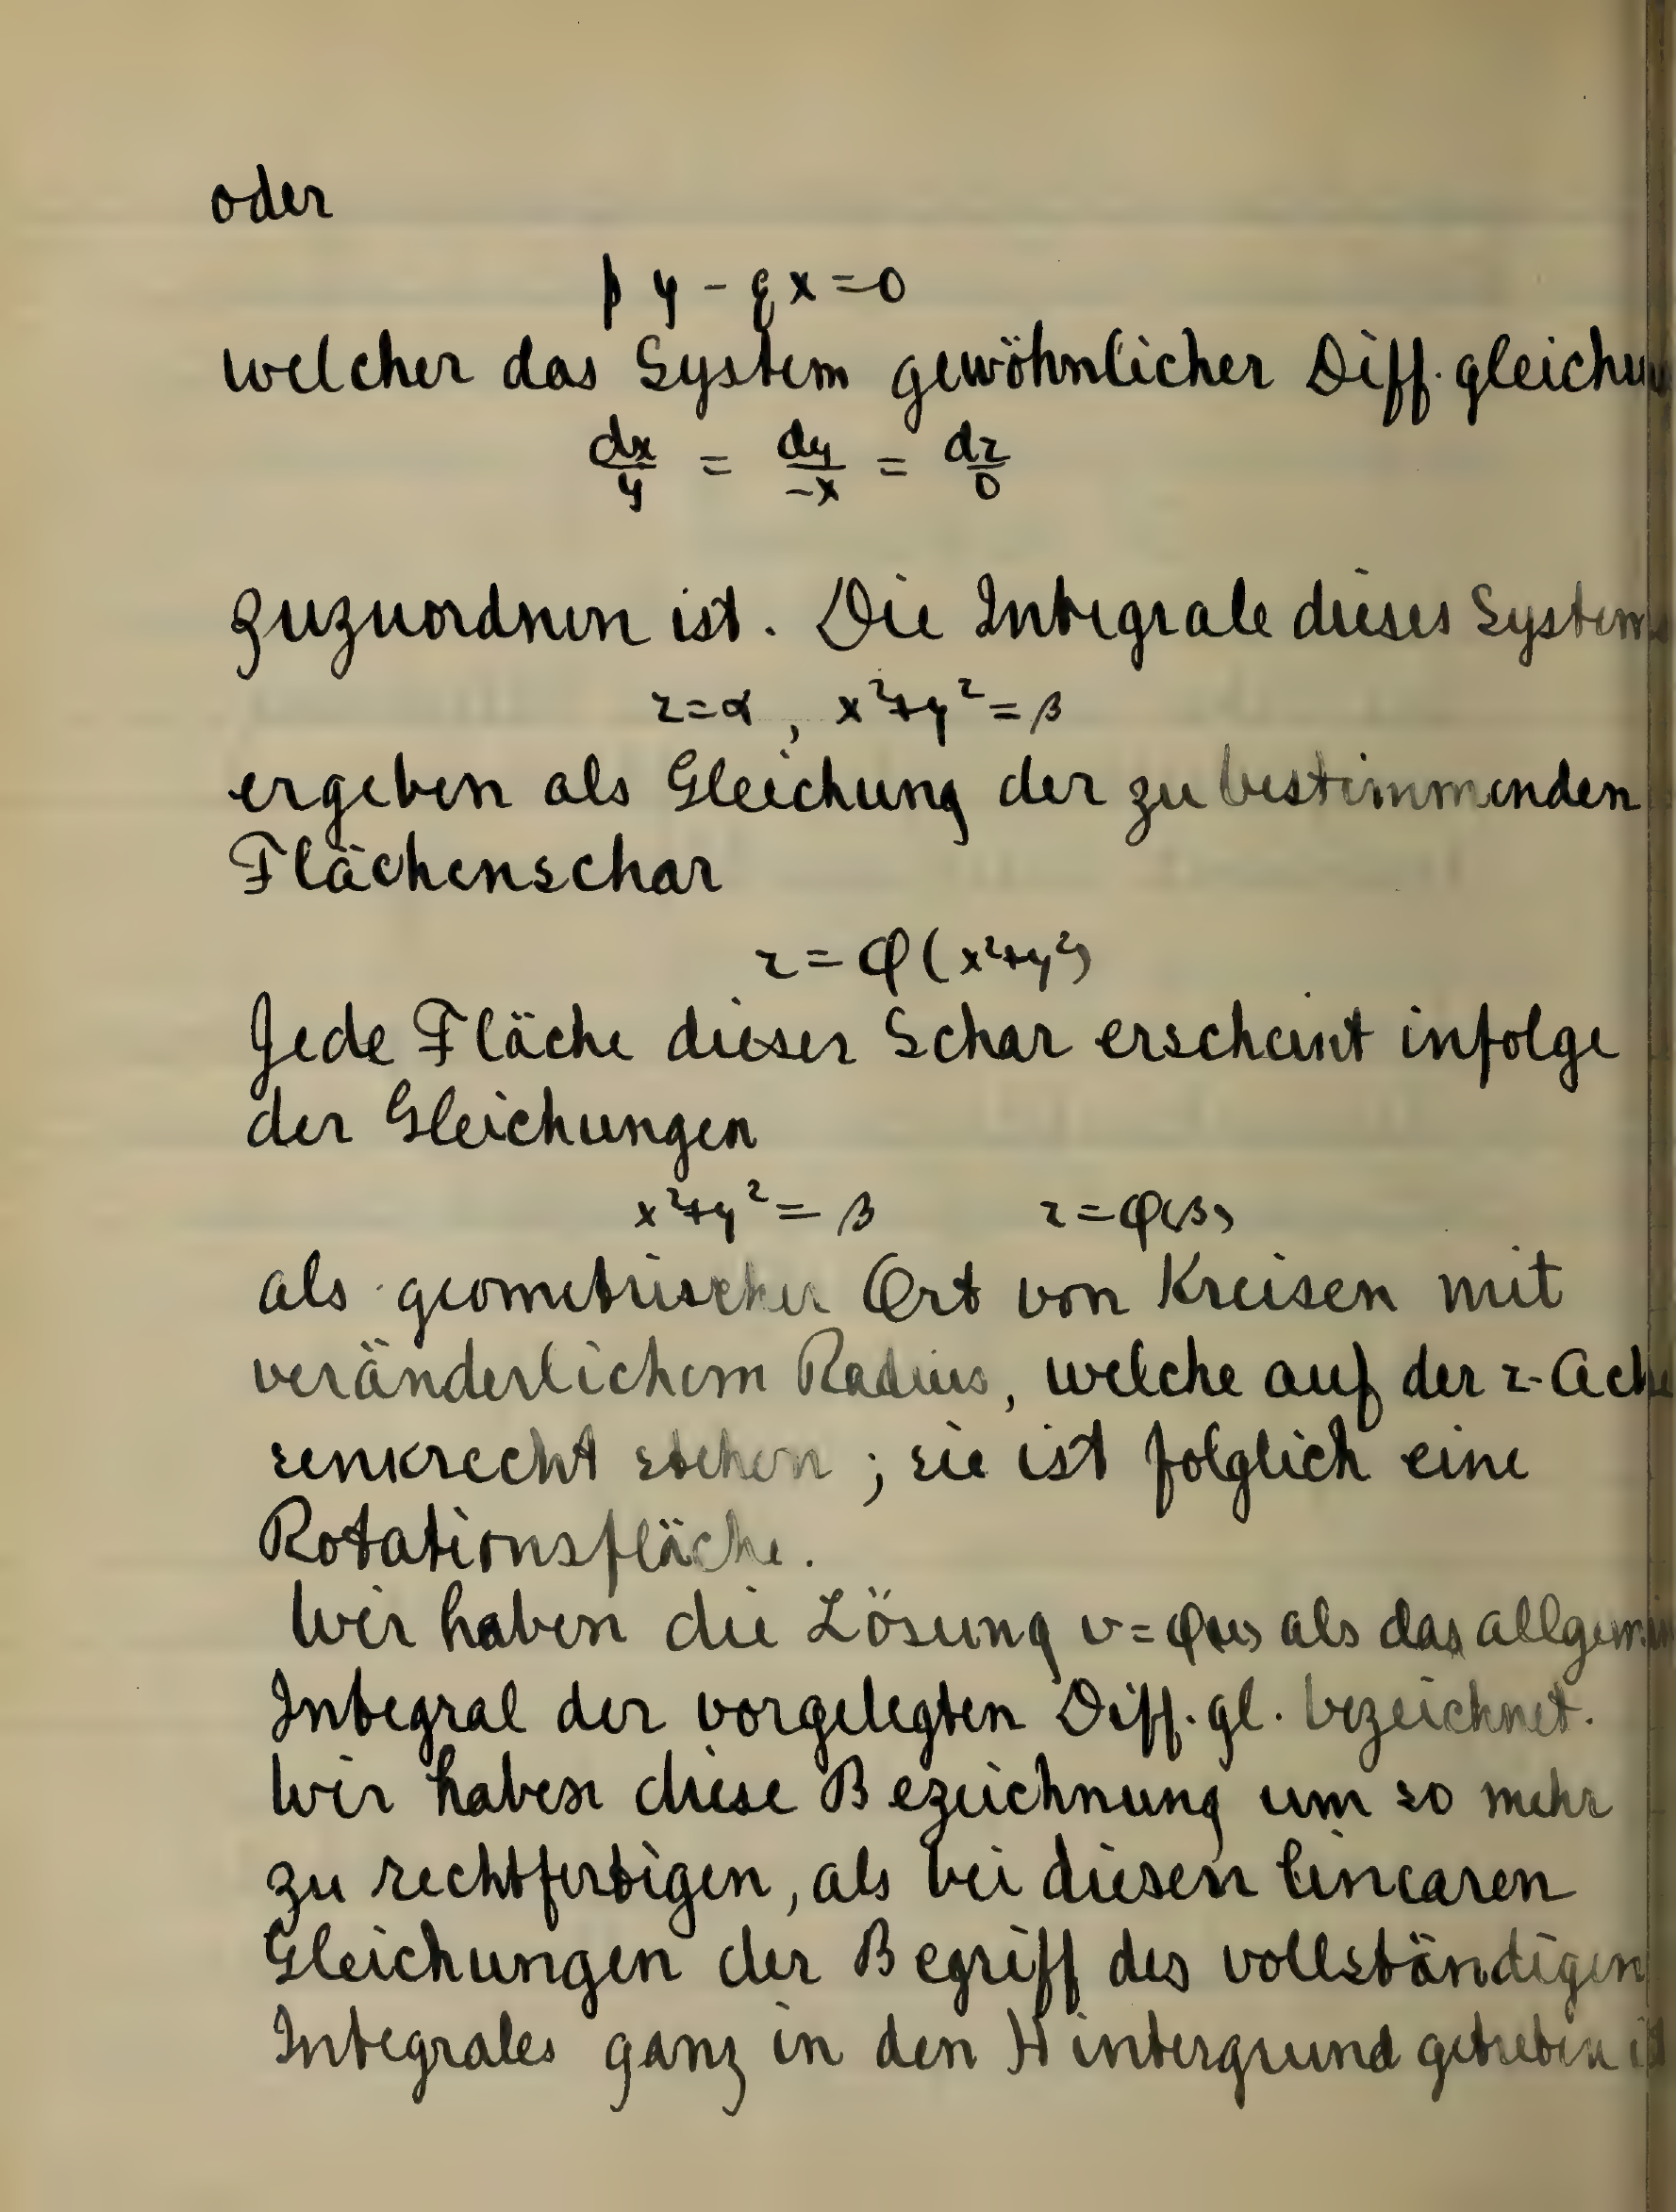 oder
p y - q x = 0
welcher das System gewöhnlicher Diff. gleichun
dx/y = dy/-x = dz/0
zuzuordnen ist. Die Integrale dieses Systems
z = α , x² + y² = β
ergeben als Gleichung der zu bestimmenden
Flächenschar
z = φ(x²+y²)
Jede Fläche dieser Schar erscheint infolge
der Gleichungen
x² + y² = β z = φ(β)
als geometrischer Ort von Kreisen mit
veränderlichem Radius, welche auf der z-Achse
senkrecht stehen ; sie ist folglich eine
Rotationsfläche.
Wir haben die Lösung v = φ(u) als das allgemein
Integral der vorgelegten Diff. gl. bezeichnet.
Wir haben diese Bezeichnung um so mehr
zu rechtfertigen, als bei diesen linearen
Gleichungen der Begriff des vollständigen
Integrales ganz in den Hintergrund getreten